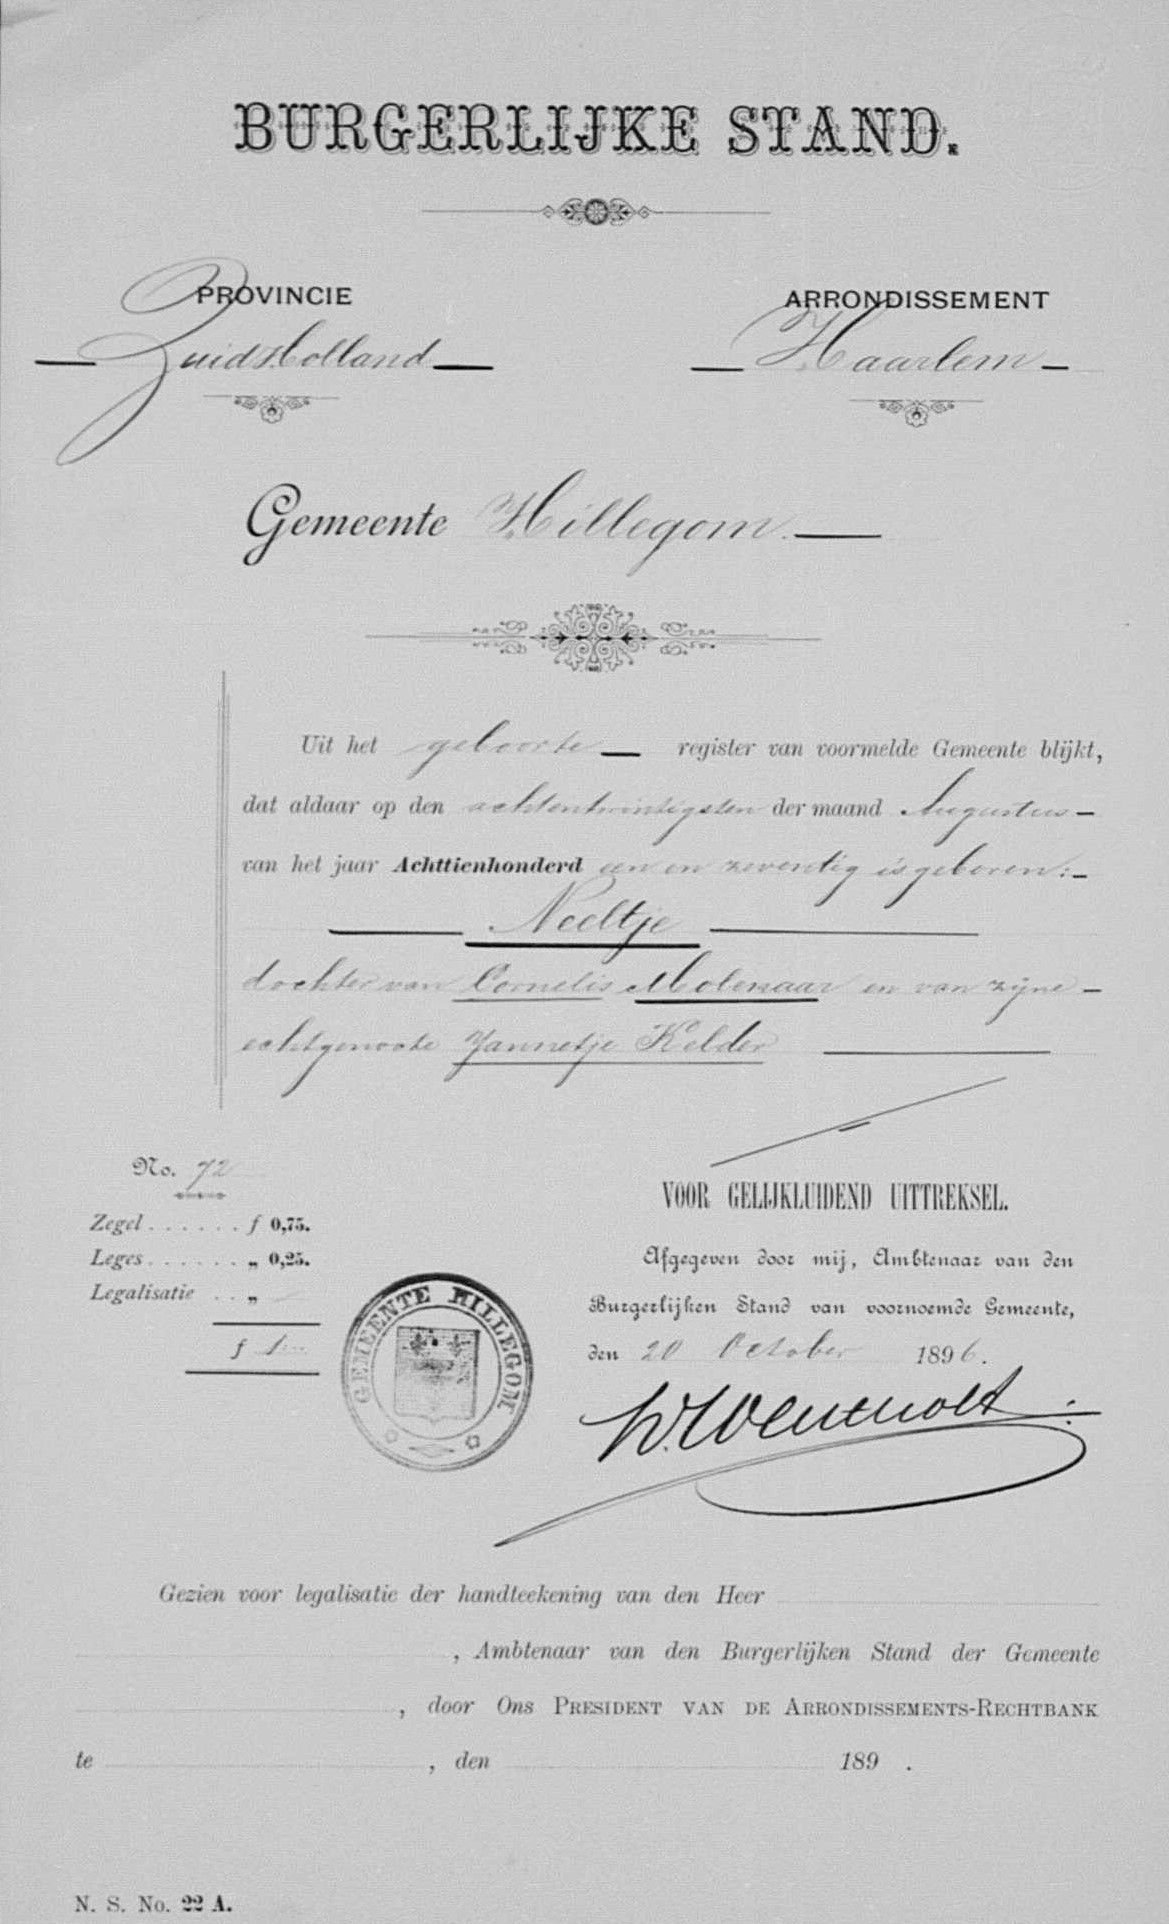 BURGERLIJKE STAND.
PROVINCIE
Zuid Holland
ARRONDISSEMENT
Haarlem
Gemeente Hillegom.
Uit het geboorte register van voormelde Gemeente blijkt,
dat aldaar op den achtentwintigsten der maand Augustus
van het jaar Achttienhonderd een en zeventig is geboren:
Neeltje
dochter van Cornelis Molenaar en van zijne
echtgenoote Jannetje Kelder
No. 72
Zegel . . . . . . f 0,75.
Leges . . . . . . „ 0,25.
Legalisatie . . „
f 1
GEMEENTE HILLEGOM
VOOR GELIJKLUIDEND UITTREKSEL.
Afgegeven door mij, Ambtenaar van den
Burgerlijken Stand van voornoemde Gemeente,
den 20 October 1896.
Gezien voor legalisatie der handteekening van den Heer
, Ambtenaar van den Burgerlijken Stand der Gemeente
, door Ons PRESIDENT VAN DE ARRONDISSEMENTS-RECHTBANK
te , den 189 .
N. S. No. 22 A.